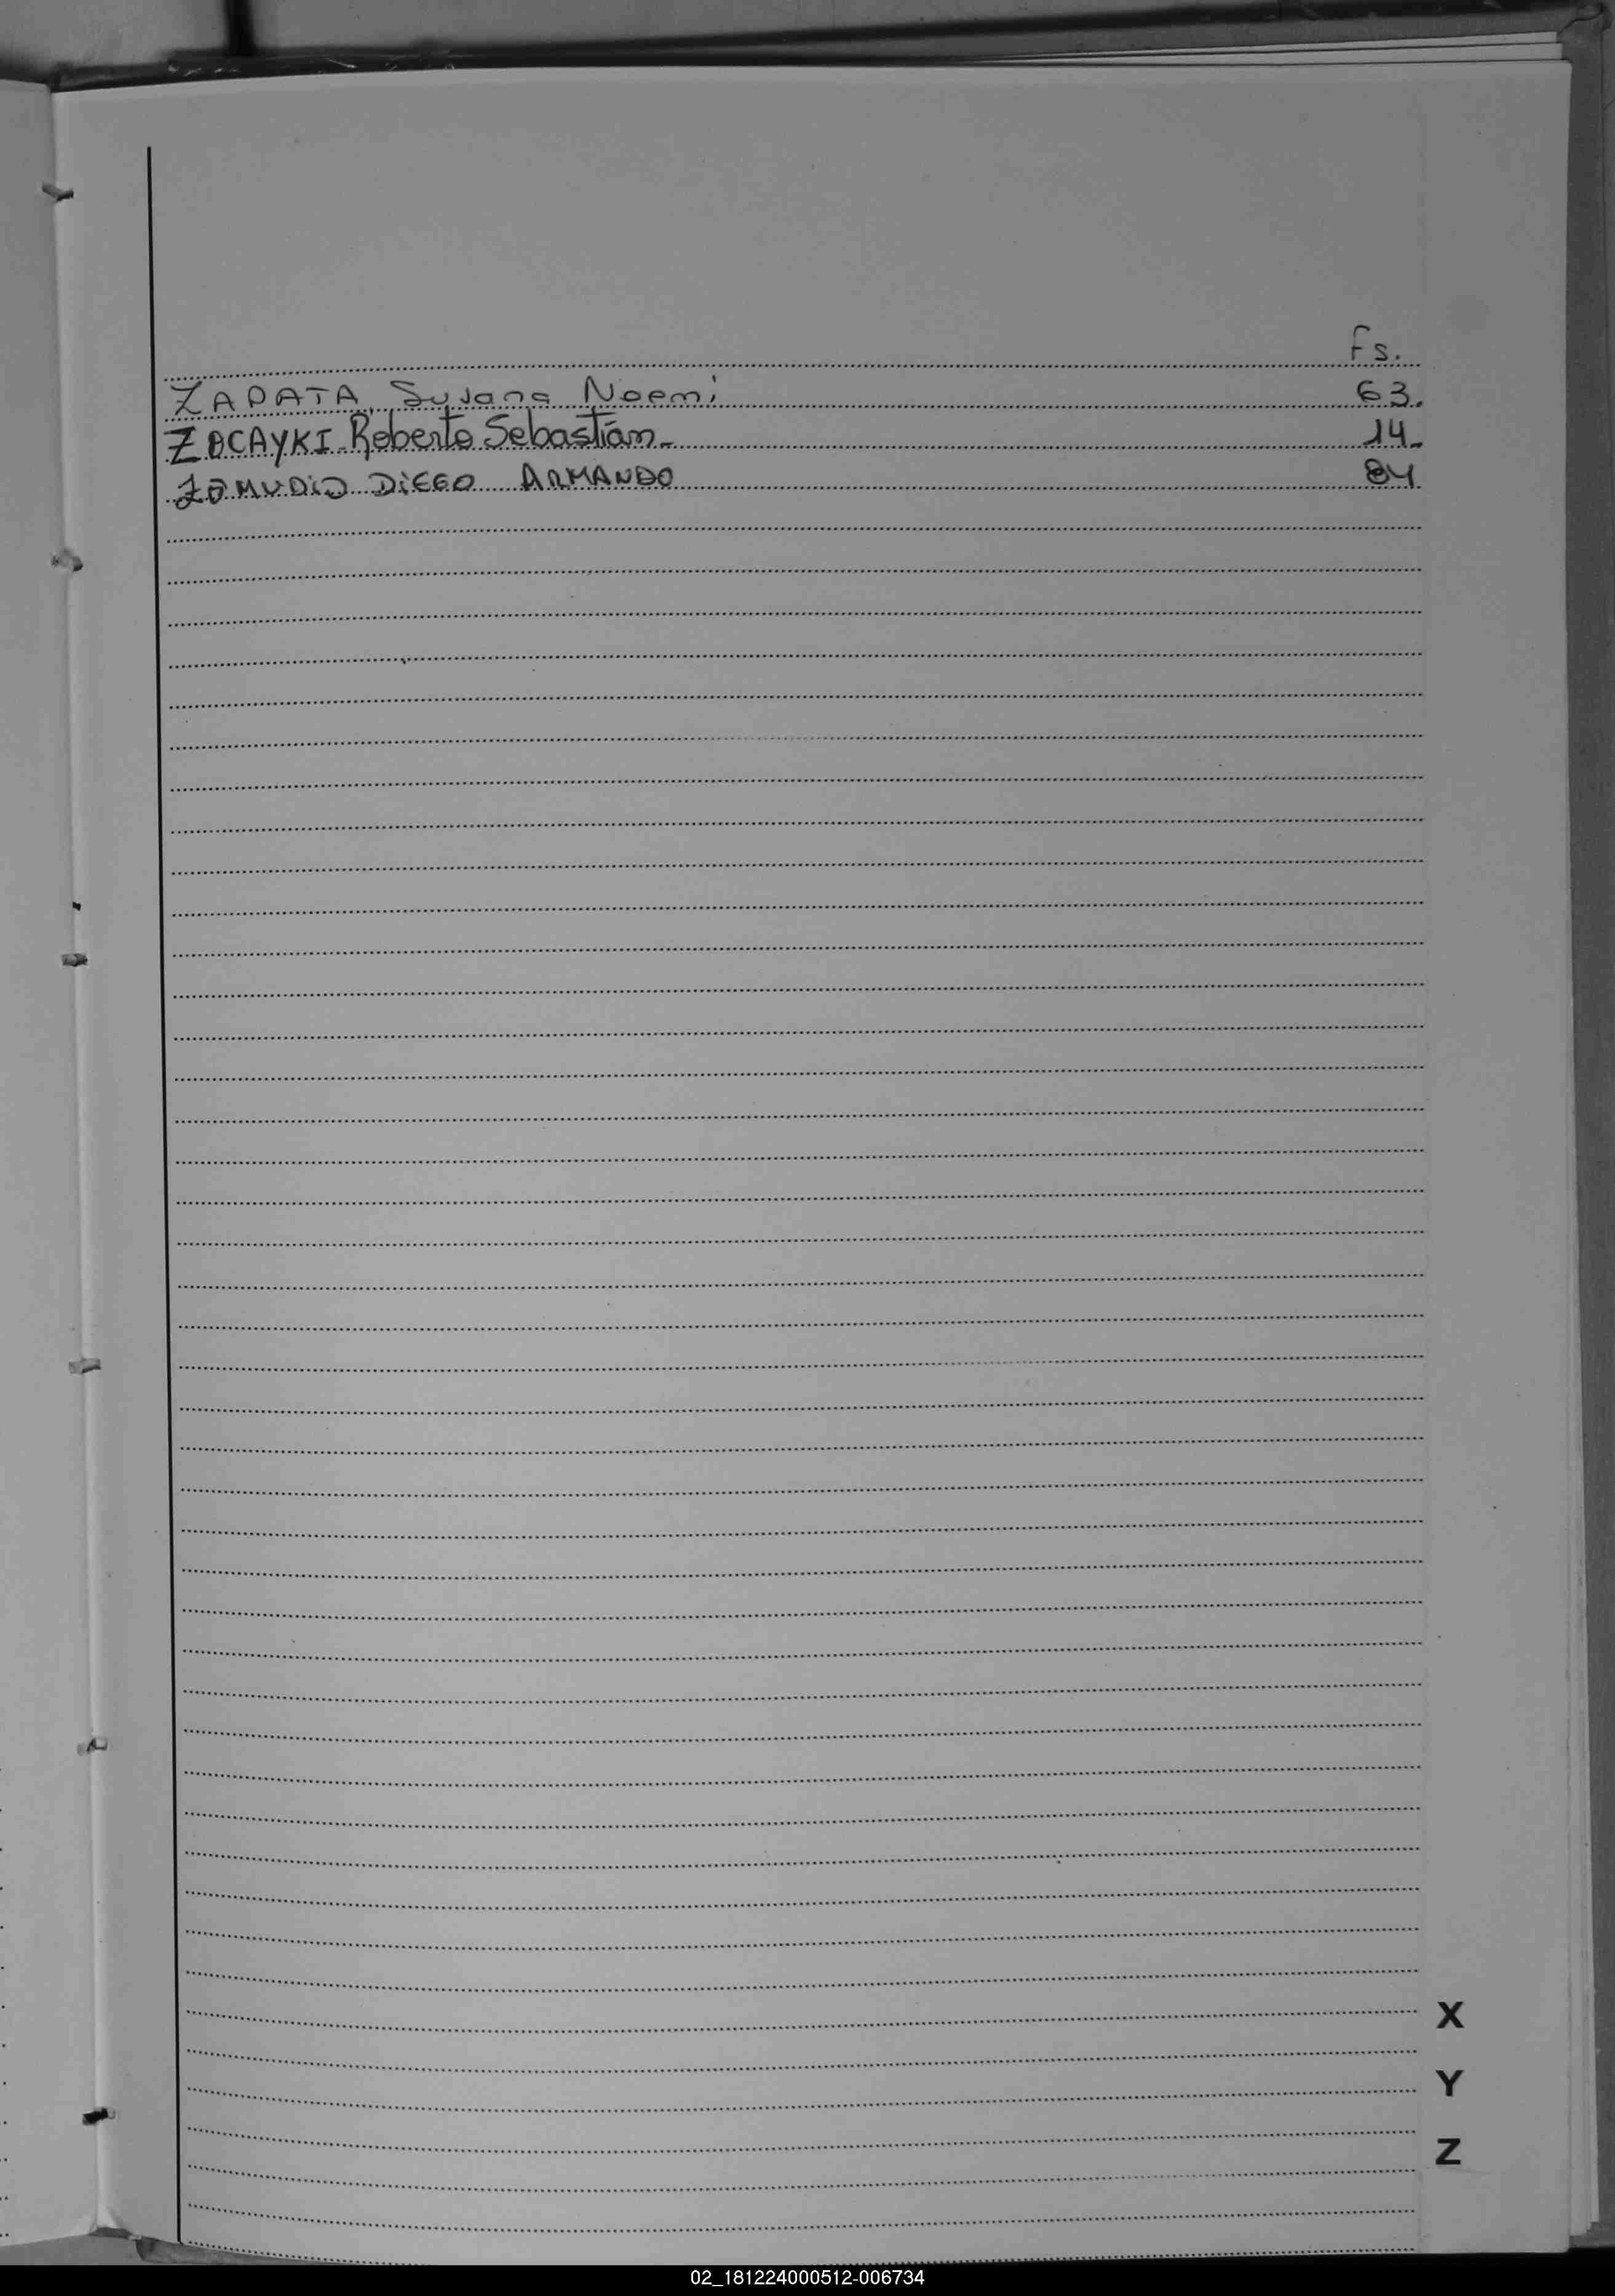 Fs.
ZAPATA, Susana Noemi 63.
ZOCAYKI - Roberto Sebastián - 14-
ZAMUDIO DIEGO ARMANDO 84
X
Y
Z
02_181224000512-006734